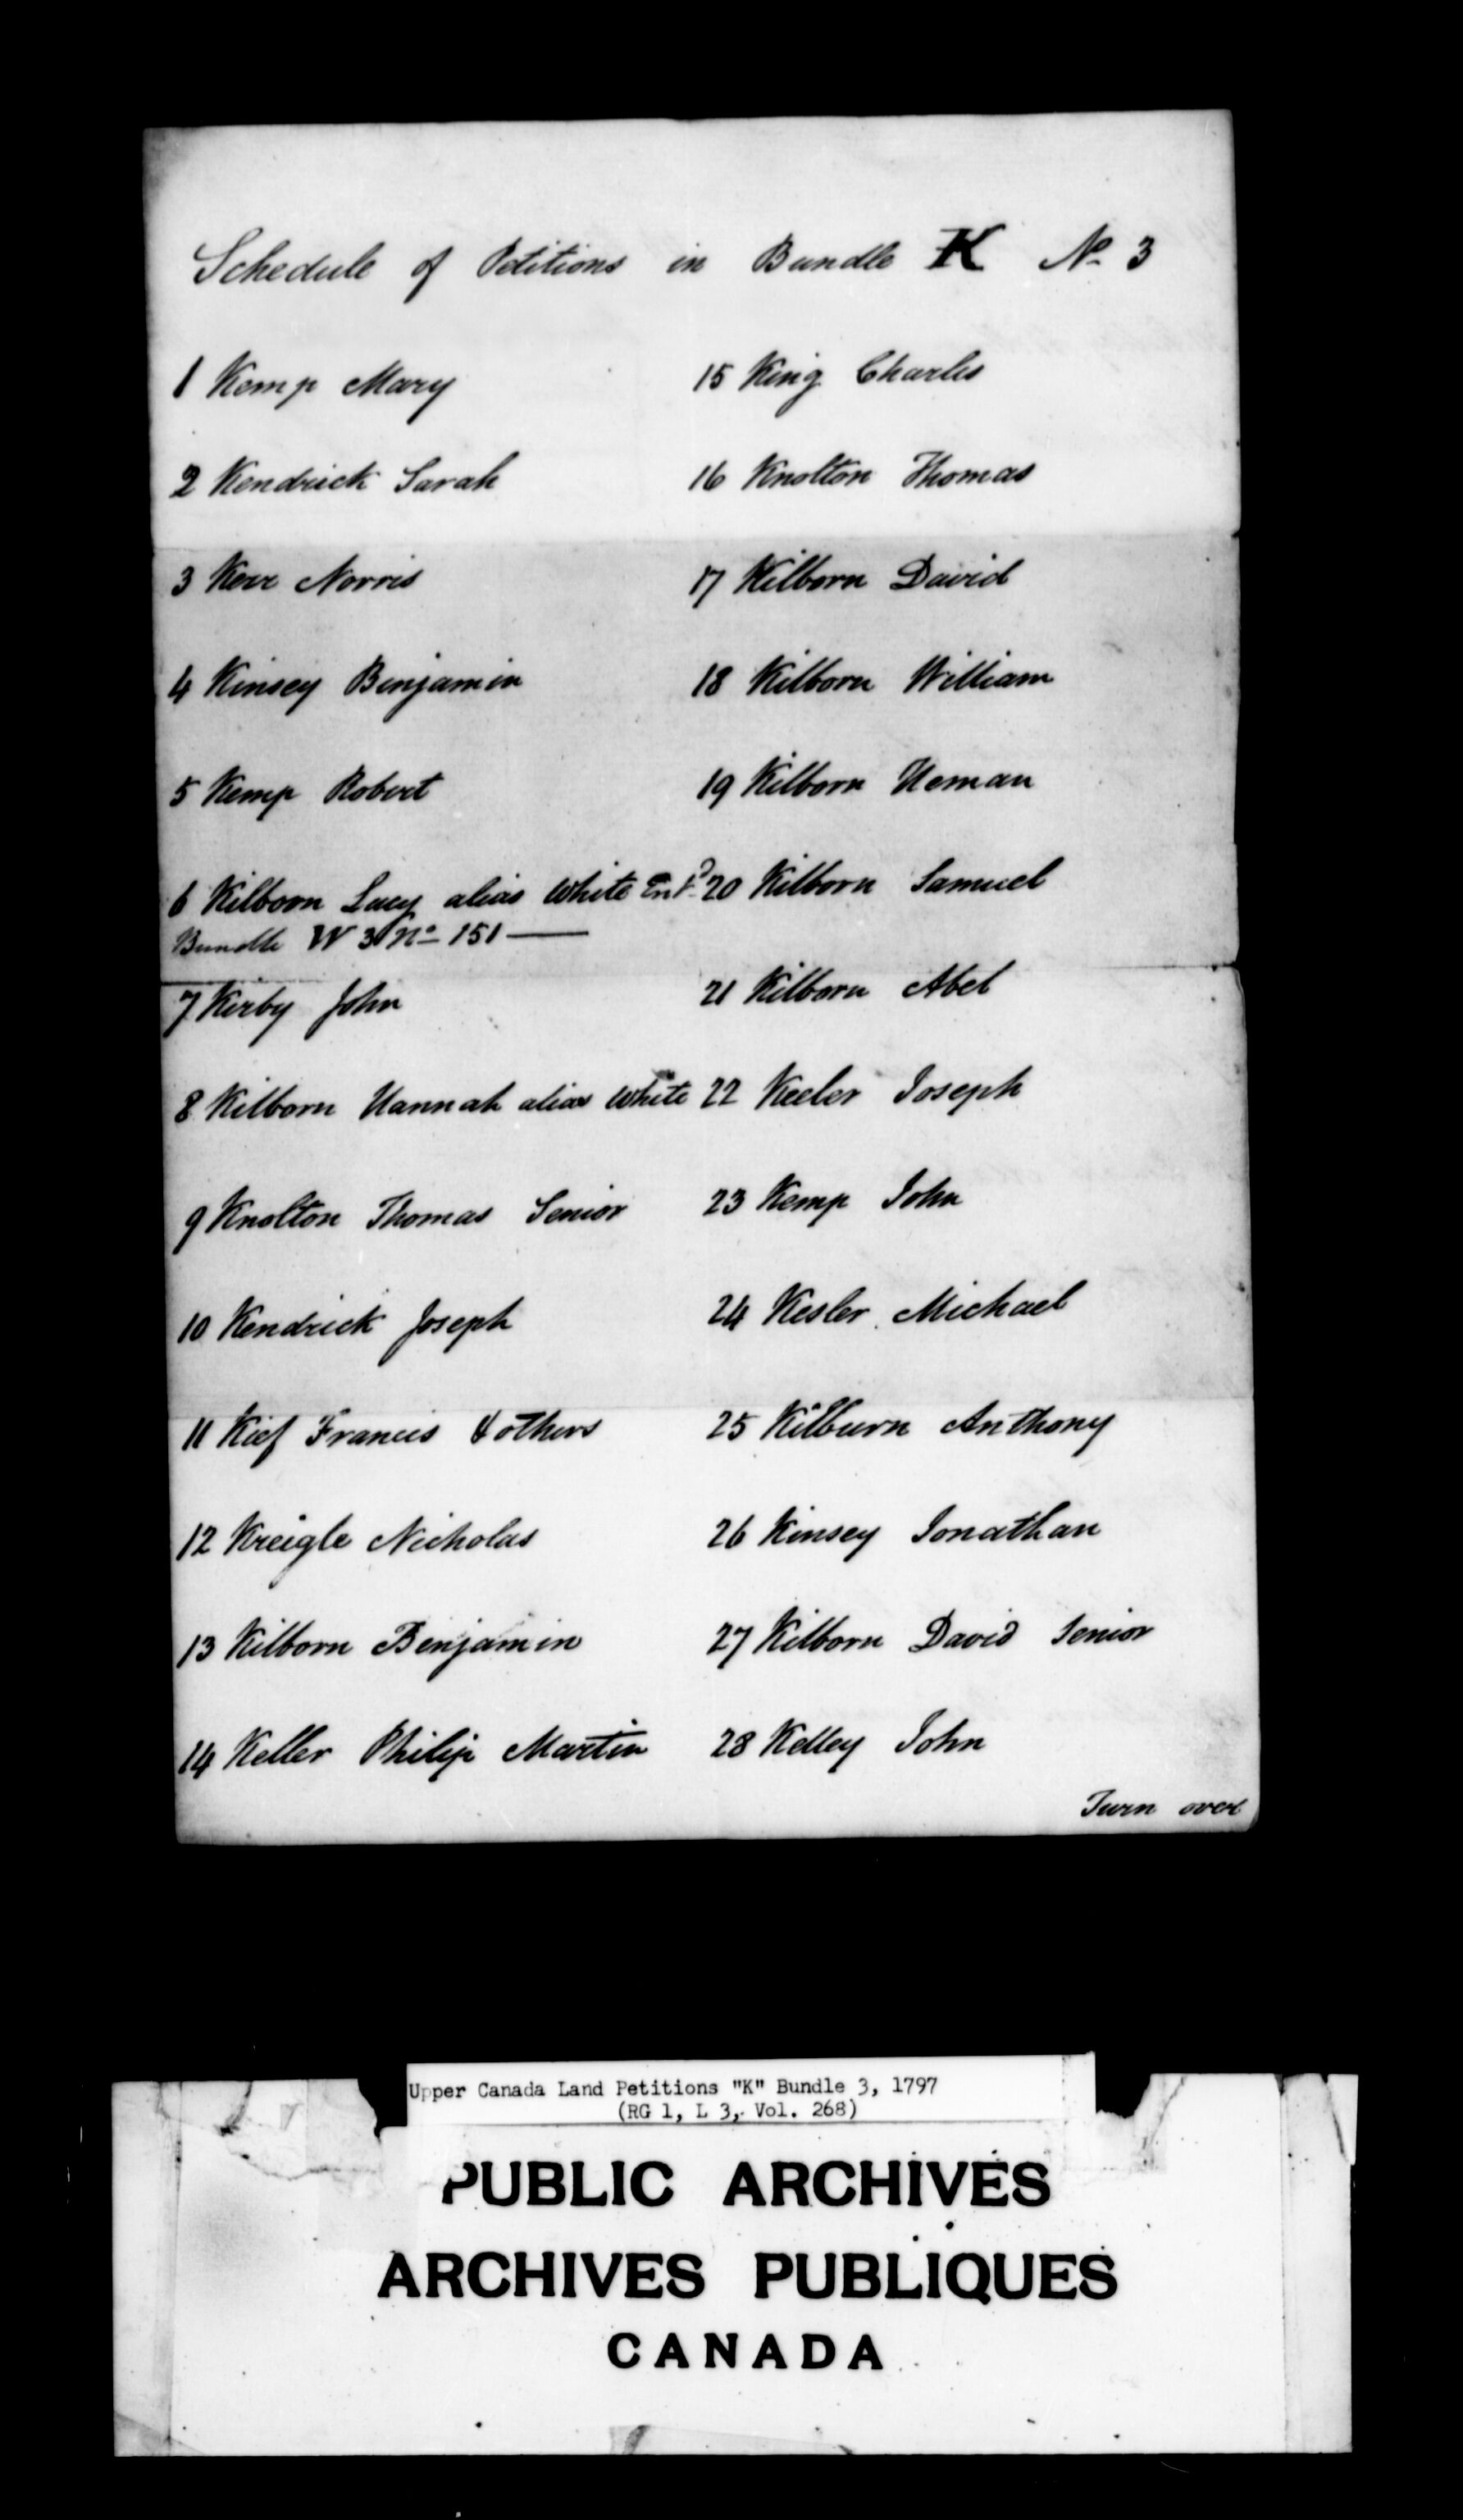 Schedule of Petitions in Bundle K No 3
1 Kemp Mary
2 Kendrick Sarah
3 Kerr Norris
4 Kinsey Benjamin
5 Kemp Robert
6 Kilborn Lucy alias White Entd
Bundle W 3 No 151 —
7 Kirby John
8 Kilborn Hannah alias White
9 Knolton Thomas Senior
10 Kendrick Joseph
11 Kief Francis & others
12 Kreigle Nicholas
13 Kilborn Benjamin
14 Keller Philip Martin
15 King Charles
16 Knolton Thomas
17 Kilborn David
18 Kilborn William
19 Kilborn Heman
20 Kilborn Samuel
21 Kilborn Abel
22 Keeler Joseph
23 Kemp John
24 Kesler Michael
25 Kilburn Anthony
26 Kinsey Jonathan
27 Kilborn David Senior
28 Kelley John
Turn over
Upper Canada Land Petitions "K" Bundle 3, 1797
(RG 1, L 3, Vol. 268)
PUBLIC ARCHIVES
ARCHIVES PUBLIQUES
CANADA